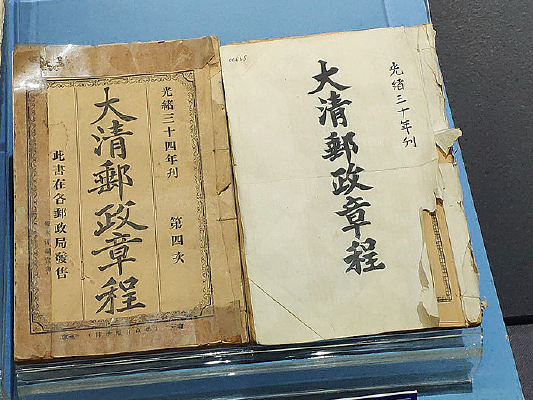 光緒三十四年刋
第四次
大清郵政章程
此書在各郵政局發售
00615
光緒三十年刋
大清郵政章程